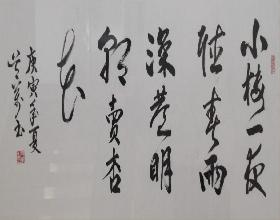 小楼一夜
听春雨
深巷明
朝卖杏
花
庚寅年夏